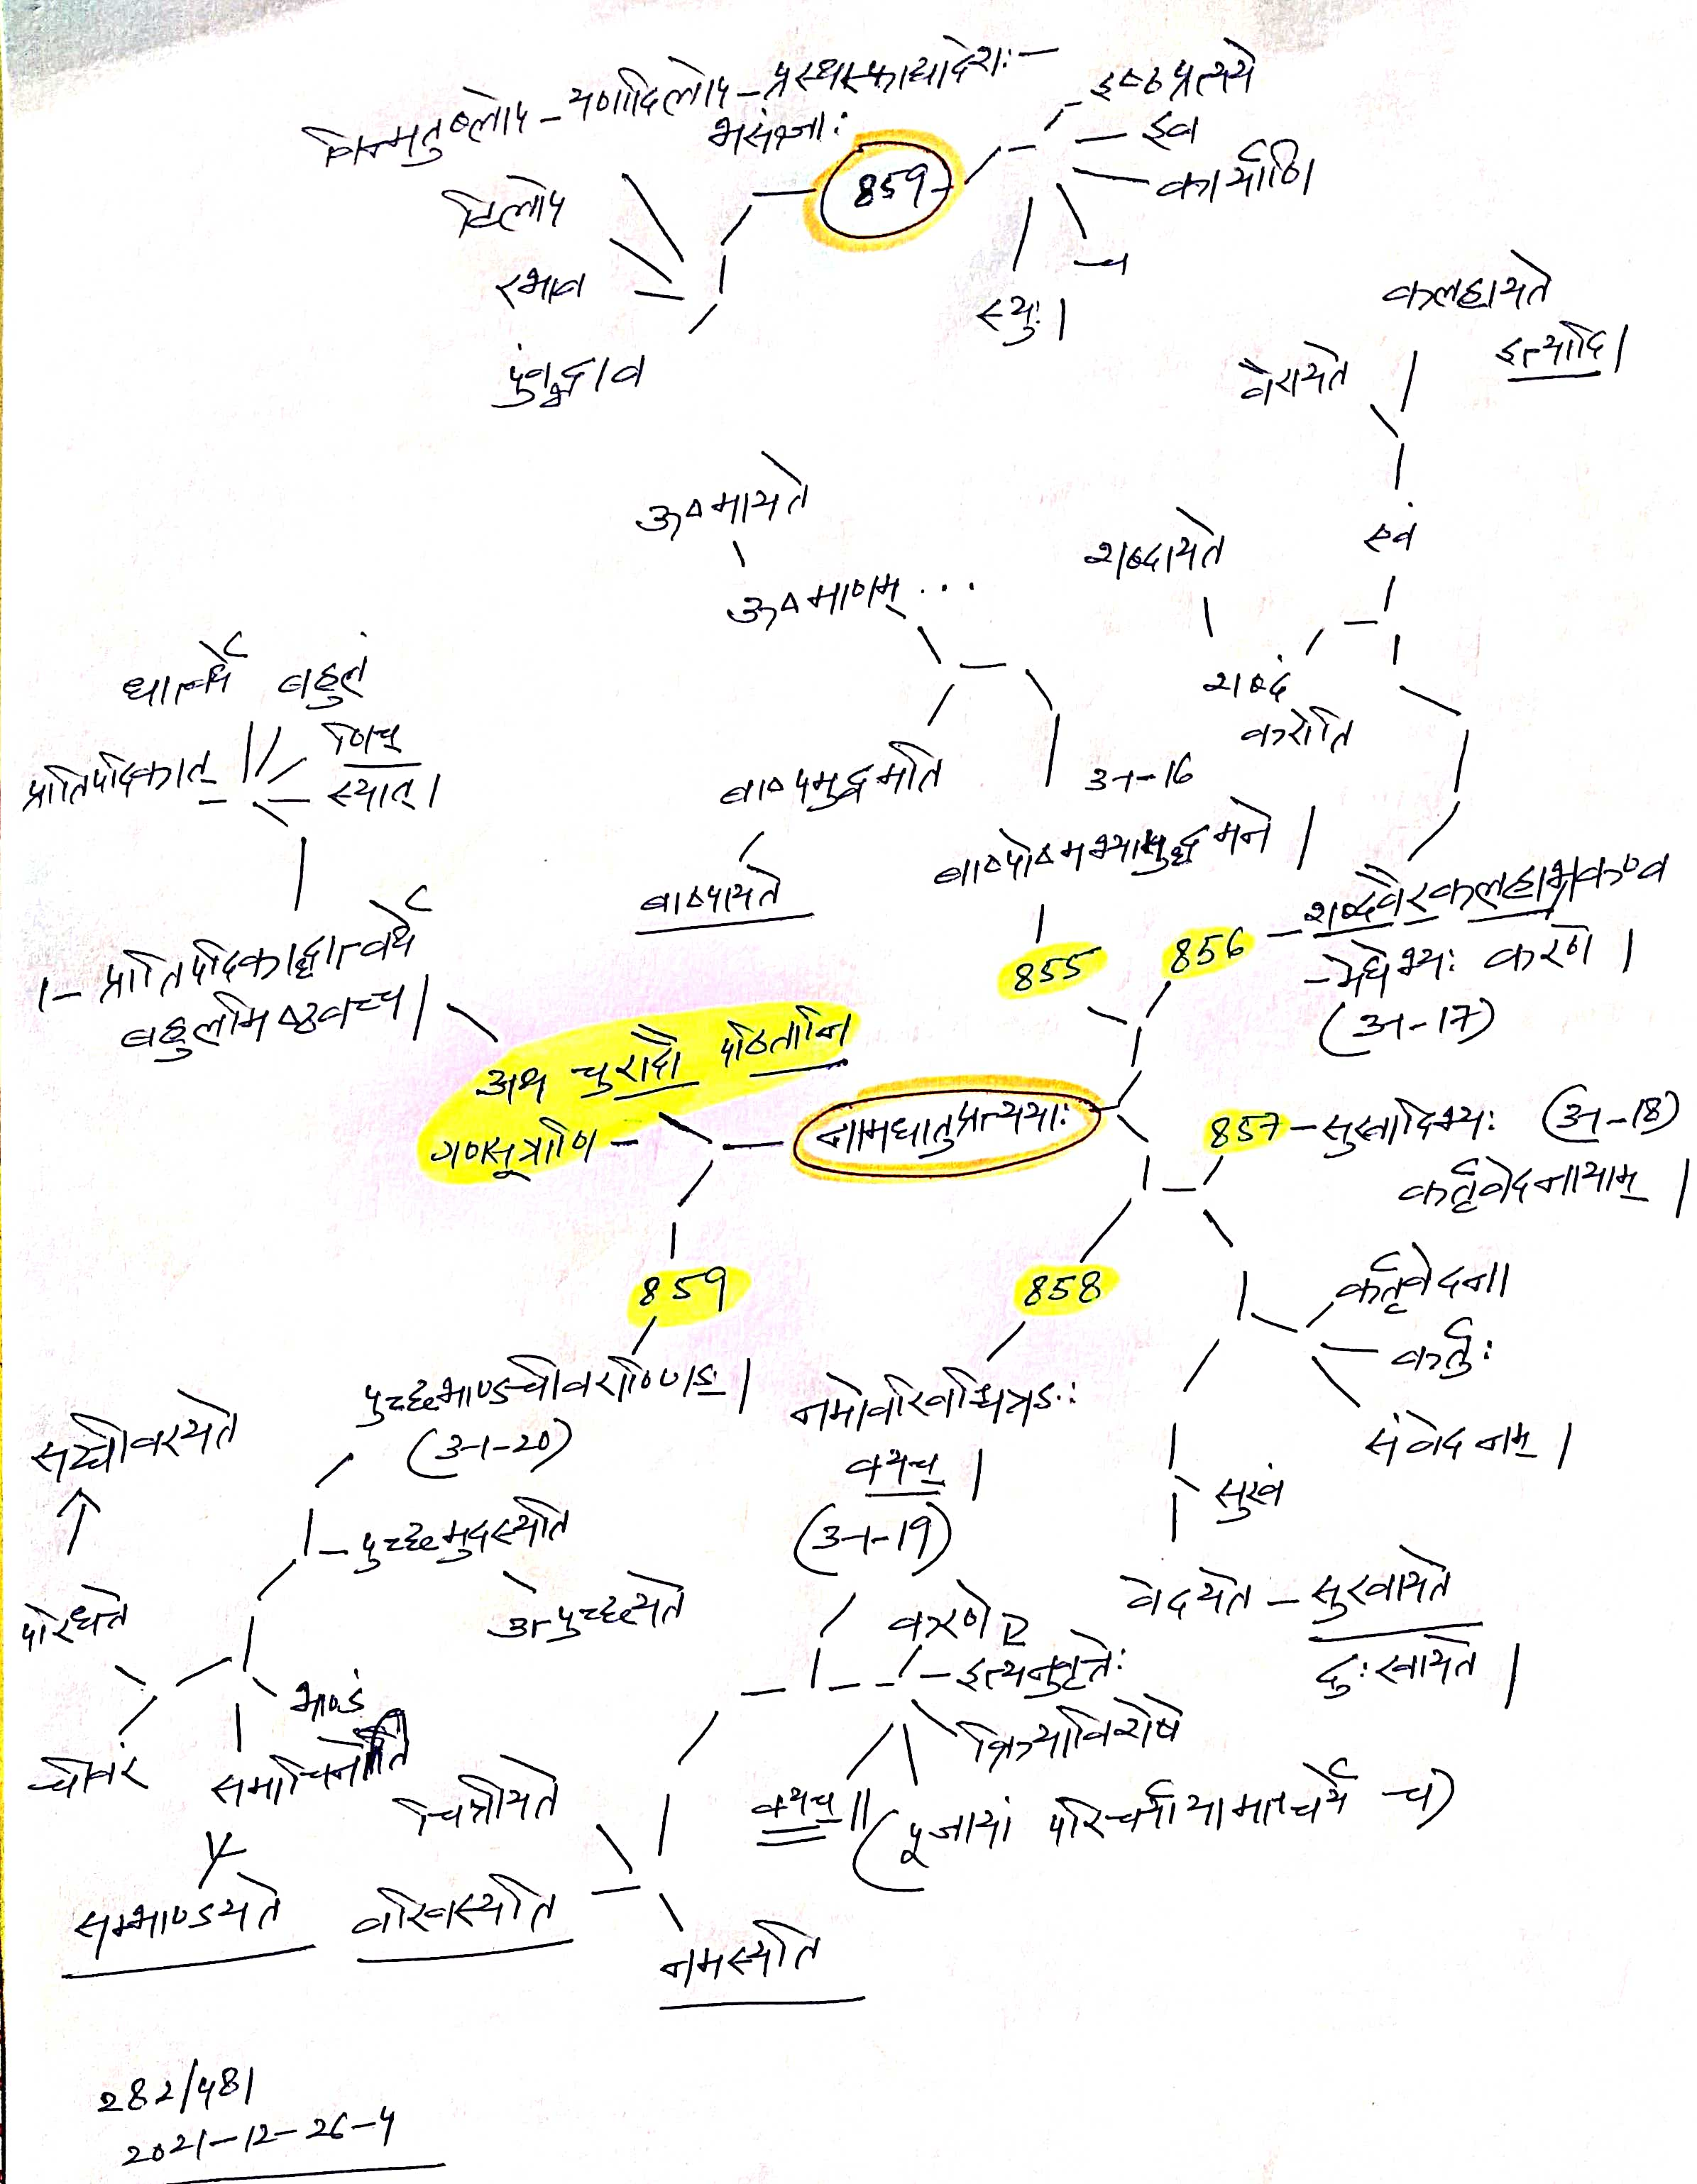 विन्मतुब्लोप - यणादिलोप - प्रस्थस्फाद्यादेशः -
भसंज्ञाः
टिलोप
रभाव
पुंवद्भाव
859
इष्ठप्रत्यये
इव
कार्याणि
च
स्युः।
कलहायते
इत्यादि।
वैरायते
एवं
शब्दायते
शब्दं
करोति
ऊष्मायते
ऊष्माणम् ...
बाष्पमुद्वमति
बाष्पायते
3-1-16
बाष्पोष्मभ्यामुद्वमने।
855
856 - शब्दवैरकलहाभ्रकण्व
- मेघेभ्यः करणे।
(3-1-17)
धात्वर्थे बहुलं
प्रातिपदिकात् णिच्
स्यात्।
1- प्रातिपदिकाद्धात्वर्थे
बहुलमिष्ठवच्च।
अथ चुरादौ पठितानि
गणसूत्राणि -
नामधातुप्रत्ययाः
857 - सुखादिभ्यः (3-1-18)
कर्तृवेदनायाम्।
कर्तृवेदना
कर्तुः
संवेदनम्।
सुखं
वेदयते - सुखायते
दुःखायते।
858
नमोवरिवश्चित्रङः
क्यच्।
(3-1-19)
करणे
इत्यनुवृत्तेः
क्रियाविशेषे
(पूजायां परिचर्यायामाश्चर्ये च)
क्यच्॥
चित्रीयते
वरिवस्यति
नमस्यति
859
पुच्छभाण्डचीवराण्णिङ्।
(3-1-20)
पुच्छमुदस्यति
उत्पुच्छयते
भाण्डं
समाचिनोति
सम्भाण्डयते
चीवरं
परिधत्ते
सञ्चीवरयते
282/481
2021-12-26-4